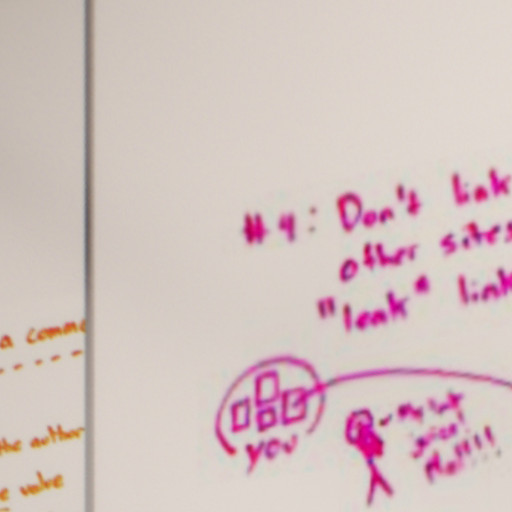 a comme
the author
e value
#4: Don't link
other sites
"leak" link
you